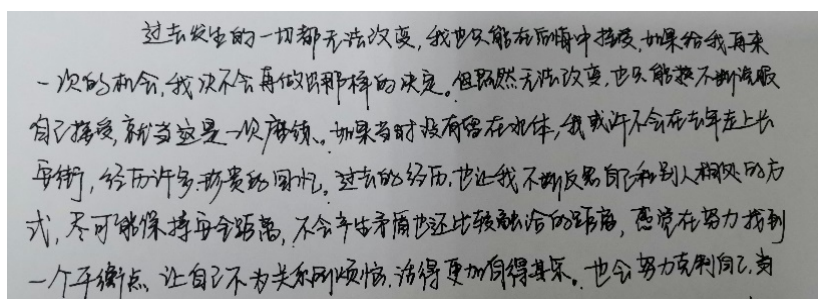 过去发生的一切都无法改变,我也只能在后悔中接受,如果给我再来
一次的机会,我决不会再做出那样的决定。但既然无法改变,也只能不断说服
自己接受,就当这是一次磨练。如果当时没有留在水体,我或许不会在去年走上长
安街,经历许多珍贵的回忆。过去的经历,也让我不断反思自己和别人相处的方
式,尽可能保持安全距离,不会产生矛盾也还比较融洽的距离,感觉在努力找到
一个平衡点,让自己不为关系所烦恼,活得更加自得其乐。也会努力克制自己,